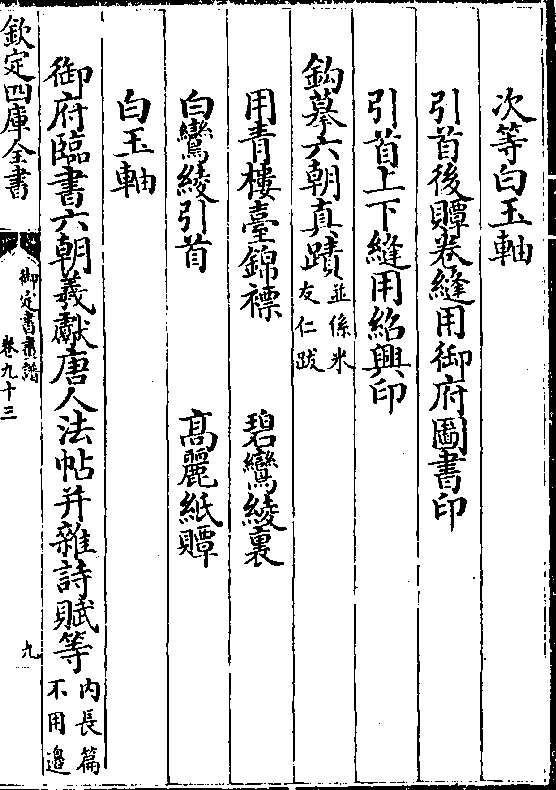 次等白玉軸
引首後贉卷縫用御府圖書印
引首上下縫用紹興印
鈎摹六朝真蹟並係米友仁跋
用青樓臺錦褾 碧鸞綾裏
白鸞綾引首 高麗紙贉
白玉軸
御府臨書六朝羲獻唐人法帖并雜詩賦等内長篇不用邉
欽定四庫全書
御定書畫譜
卷九十三
九